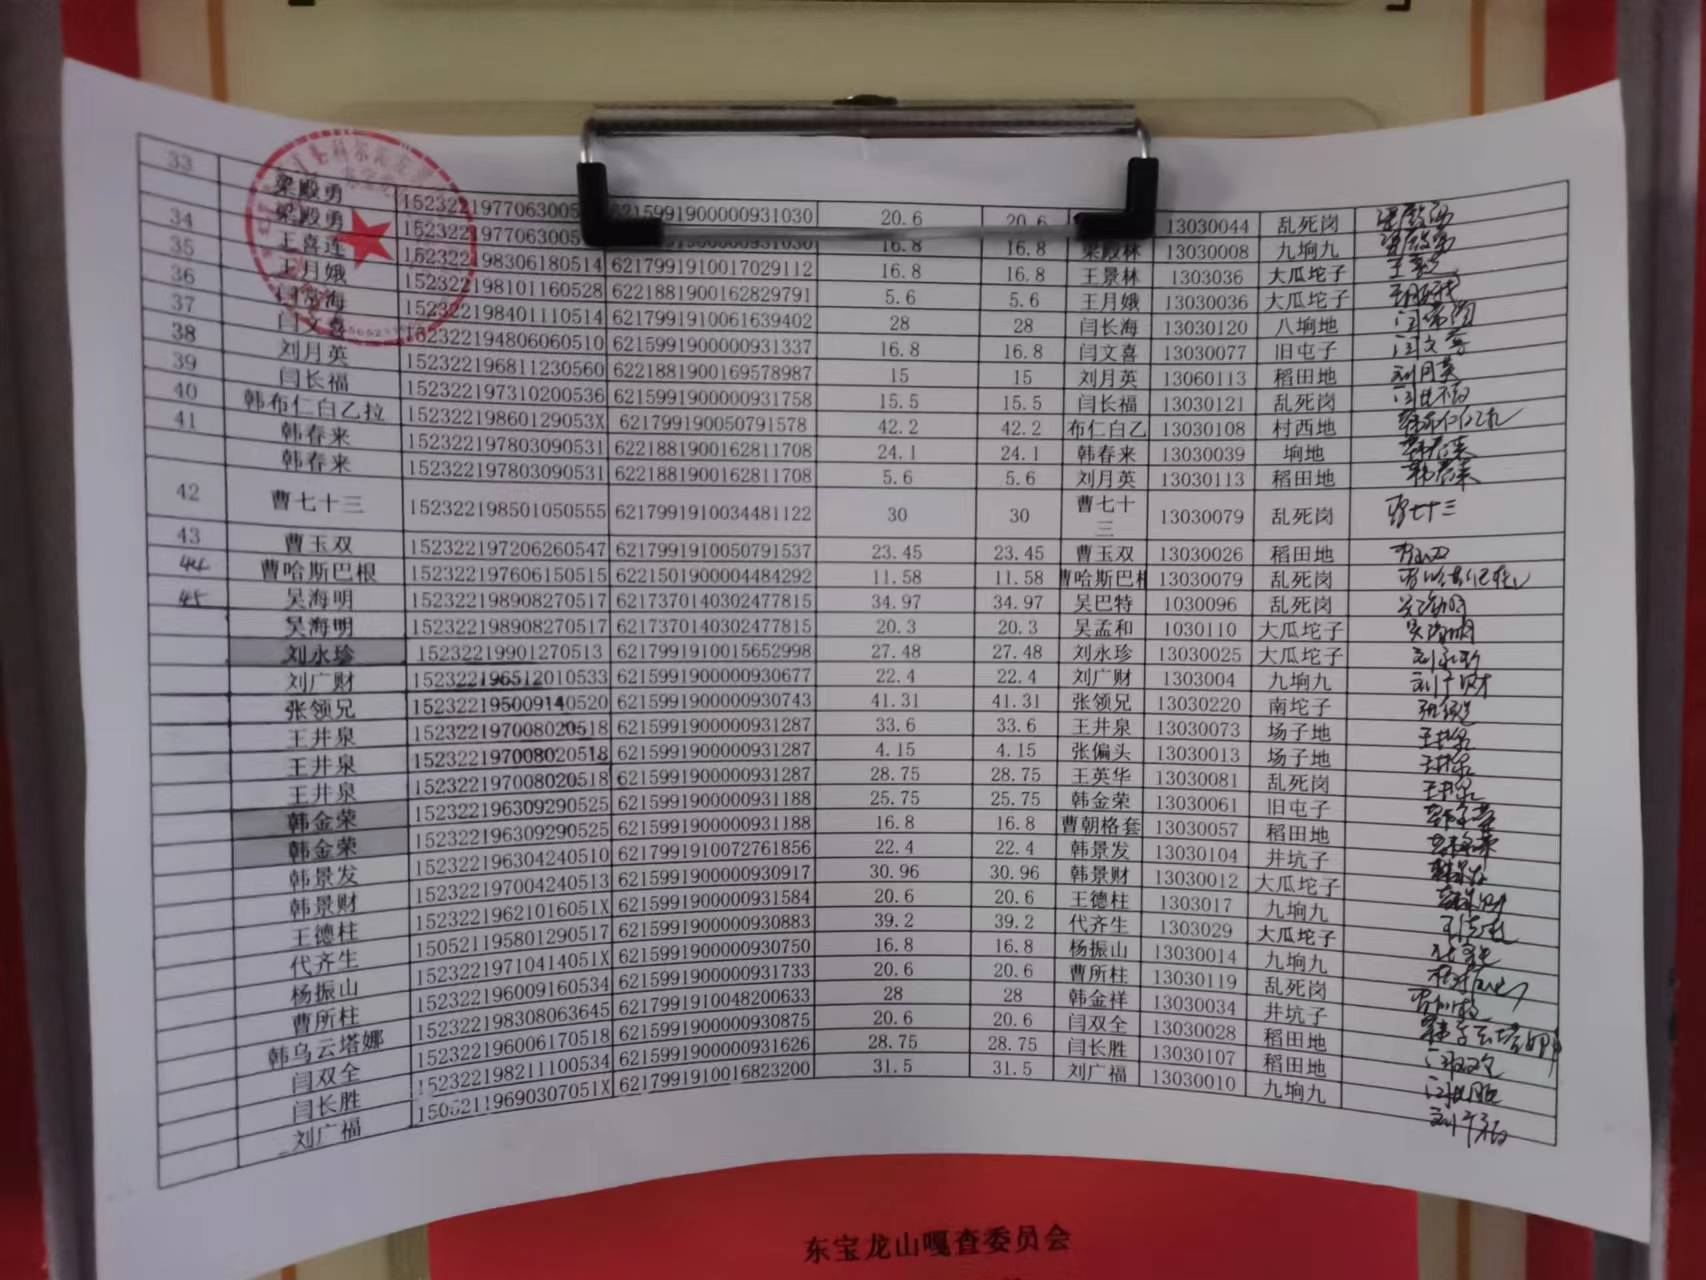 33 梁殿勇 1523221977063005 6215991900000931030 20.6 20.6 13030044 乱死岗
梁殿勇 1523221977063005 16.8 16.8 梁殿林 13030008 九垧九
34 王喜连 152322198306180514 6217991910017029112 16.8 16.8 王景林 1303036 大瓜坨子
35 王月娥 152322198101160528 6221881900162829791 5.6 5.6 王月娥 13030036 大瓜坨子
36 海 152322198401110514 6217991910061639402 28 28 闫长海 13030120 八垧地
37 闫文喜 152322194806060510 6215991900000931337 16.8 16.8 闫文喜 13030077 旧屯子 闫文喜
38 刘月英 152322196811230560 6221881900169578987 15 15 刘月英 13060113 稻田地 刘月英
39 闫长福 152322197310200536 6215991900000931758 15.5 15.5 闫长福 13030121 乱死岗 闫长福
40 韩布仁白乙拉 15232219860129053X 6217991900507915​78 42.2 42.2 布仁白乙 13030108 村西地
41 韩春来 152322197803090531 6221881900162811708 24.1 24.1 韩春来 13030039 垧地 韩春来
韩春来 152322197803090531 6221881900162811708 5.6 5.6 刘月英 13030113 稻田地 韩春来
42 曹七十三 152322198501050555 6217991910034481122 30 30 曹七十三 13030079 乱死岗 曹七十三
43 曹玉双 152322197206260547 6217991910050791537 23.45 23.45 曹玉双 13030026 稻田地
44 曹哈斯巴根 152322197606150515 6221501900004484292 11.58 11.58 曹哈斯巴根 13030079 乱死岗
45 吴海明 152322198908270517 6217370140302477815 34.97 34.97 吴巴特 1030096 乱死岗 吴海明
吴海明 152322198908270517 6217370140302477815 20.3 20.3 吴孟和 1030110 大瓜坨子 吴海明
刘永珍 15232219901270513 6217991910015652998 27.48 27.48 刘永珍 13030025 大瓜坨子 刘永珍
刘广财 152322196512010533 6215991900000930677 22.4 22.4 刘广财 1303004 九垧九 刘广财
张领兄 15232219500914​0520 6215991900000930743 41.31 41.31 张领兄 13030220 南坨子
王井泉 152322197008020518 6215991900000931287 33.6 33.6 王井泉 13030073 场子地 王井泉
王井泉 152322197008020518 6215991900000931287 4.15 4.15 张偏头 13030013 场子地 王井泉
王井泉 152322197008020518 6215991900000931287 28.75 28.75 王英华 13030081 乱死岗 王井泉
韩金荣 152322196309290525 6215991900000931188 25.75 25.75 韩金荣 13030061 旧屯子 韩金荣
韩金荣 152322196309290525 6215991900000931188 16.8 16.8 曹朝格套 13030057 稻田地 韩金荣
韩景发 152322196304240510 6217991910072761856 22.4 22.4 韩景发 13030104 井坑子
韩景财 152322197004240513 6215991900000930917 30.96 30.96 韩景财 13030012 大瓜坨子 韩景财
王德柱 15232219621016051X 6215991900000931584 20.6 20.6 王德柱 1303017 九垧九
代齐生 150521195801290517 6215991900000930883 39.2 39.2 代齐生 1303029 大瓜坨子
杨振山 15232219710414051X 6215991900000930750 16.8 16.8 杨振山 13030014 九垧九 杨振山
曹所柱 152322196009160534 6215991900000931733 20.6 20.6 曹所柱 13030119 乱死岗
韩乌云塔娜 152322198308063645 6217991910048200633 28 28 韩金祥 13030034 井坑子 韩乌云塔娜
闫双全 152322196006170518 6215991900000930875 20.6 20.6 闫双全 13030028 稻田地 闫双全
闫长胜 152322198211100534 6215991900000931626 28.75 28.75 闫长胜 13030107 稻田地 闫长胜
刘广福 15052119690307051X 6217991910016823200 31.5 31.5 刘广福 13030010 九垧九 刘广福
东宝龙山嘎查委员会